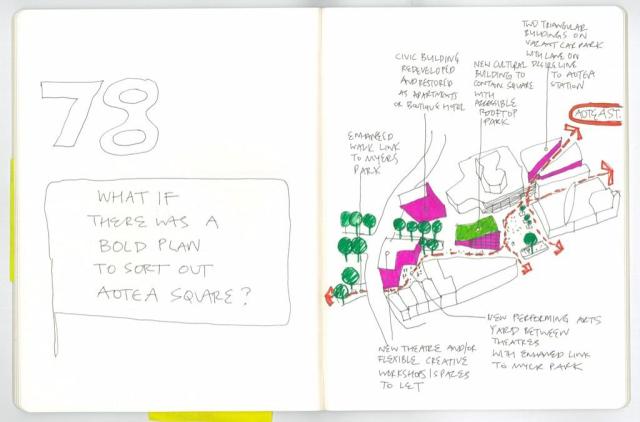 78
WHAT IF
THERE WAS A
BOLD PLAN
TO SORT OUT
AOTEA SQUARE?
TWO TRIANGULAR
BUILDINGS ON
VACANT CAR PARK
WITH LANE ON
DESIRE LINE
TO AOTEA
STATION
CIVIC BUILDING
REDEVELOPED
AND RESTORED
AS APARTMENTS
OR BOUTIQUE HOTEL
NEW CULTURAL
BUILDING TO
CONTAIN SQUARE
WITH
ACCESSIBLE
ROOFTOP
PARK
AOTEA ST.
ENHANCED
WALK LINK
TO MYERS
PARK
NEW THEATRE AND/OR
FLEXIBLE CREATIVE
WORKSHOPS/SPACES
TO LET
NEW PERFORMING ARTS
YARD BETWEEN
THEATRES
WITH ENHANCED LINK
TO MYER PARK